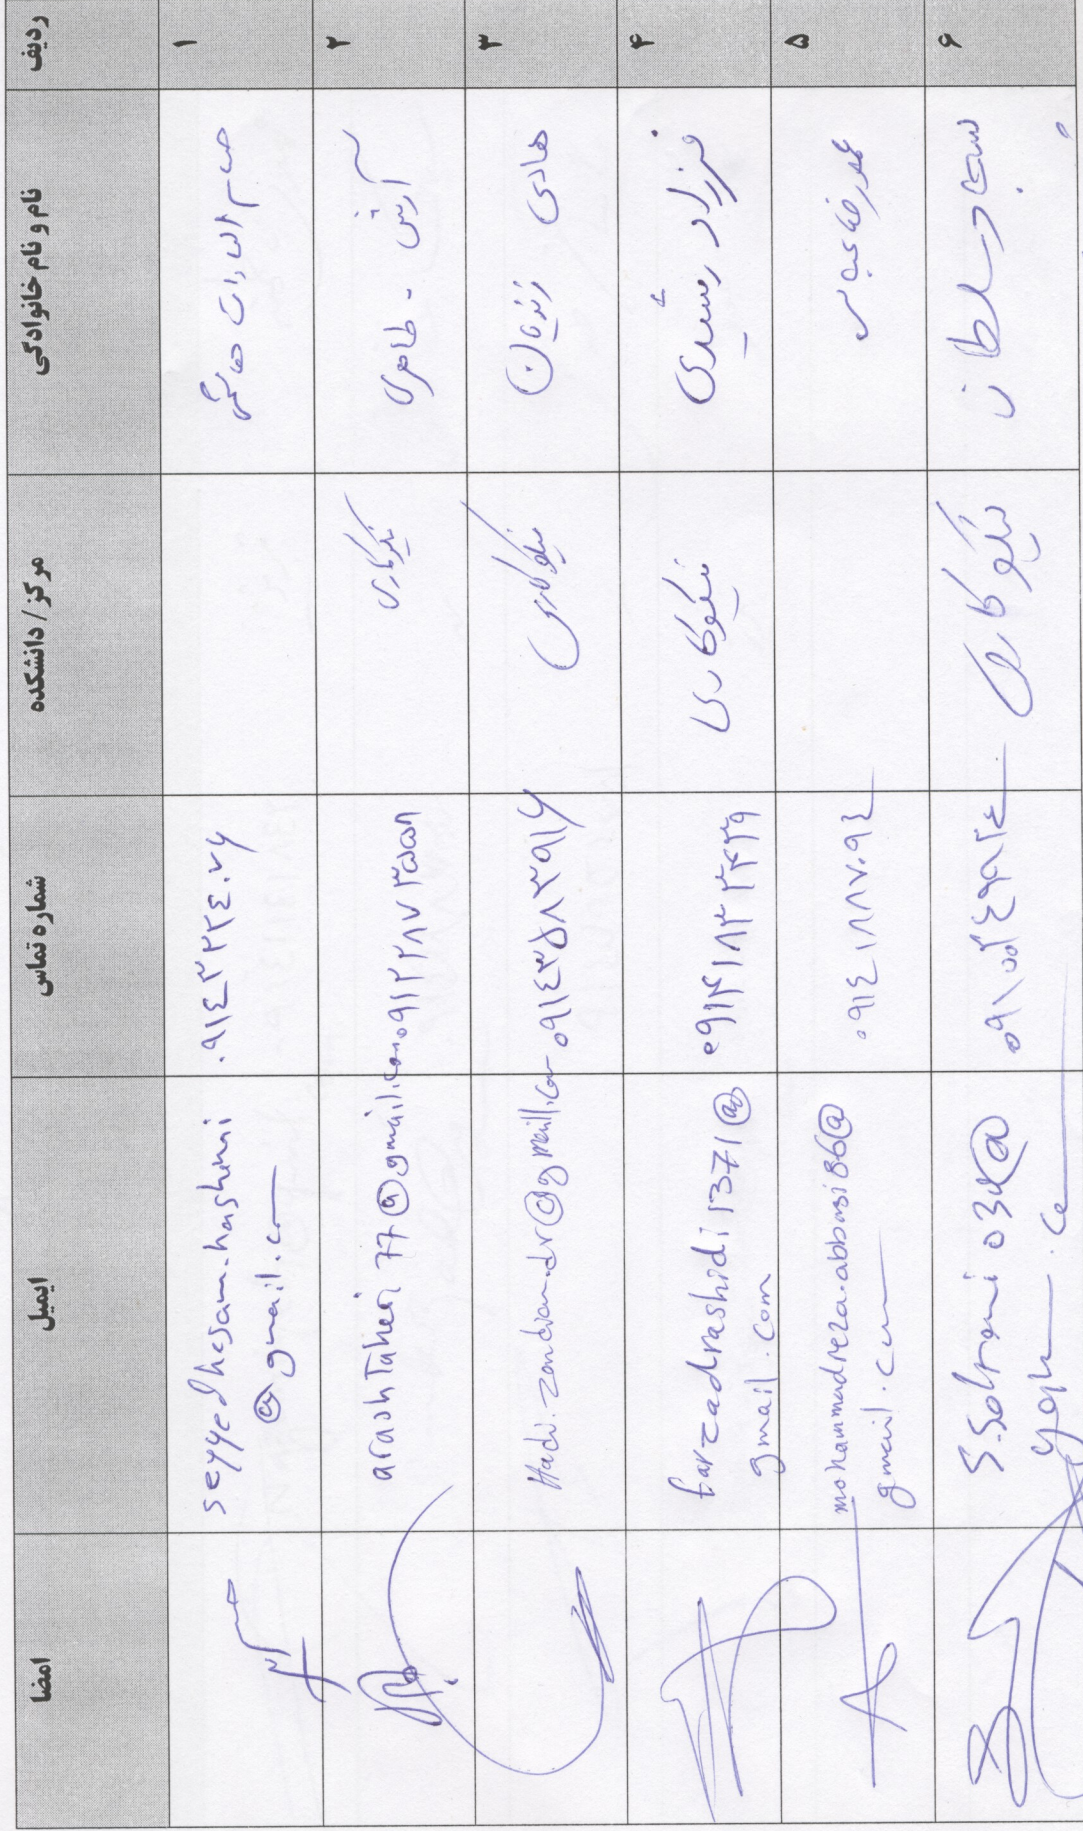 ردیف
نام و نام خانوادگی
مرکز / دانشکده
شماره تماس
ایمیل
امضا
۱
حسام السادات هاشمی
۰۹۱۴۳۲۲۴۰۷۶
seyyedhesam.hashimi
@gmail.com
۲
آرش - طاهری
نیکوکاری
۰۹۱۲۲۸۷۳۵۵۸
arashtaheri77@gmail.com
۳
هادی زندیان
نیکوکاری
۰۹۱۴۳۵۸۳۹۱۶
Hadi.zandian.dr@gmail.com
۴
فرزاد رشیدی
نیکوکاری
۰۹۱۴۱۸۳۳۴۳۹
farzadrashidi1371@
gmail.com
۵
محمدرضا عباسی
۰۹۱۴۱۸۸۷۰۹۴
mohammadreza.abbasi86@
gmail.com
۶
سجاد سلطانی
نیکوکاری
S.Soltani034@
yahoo.com